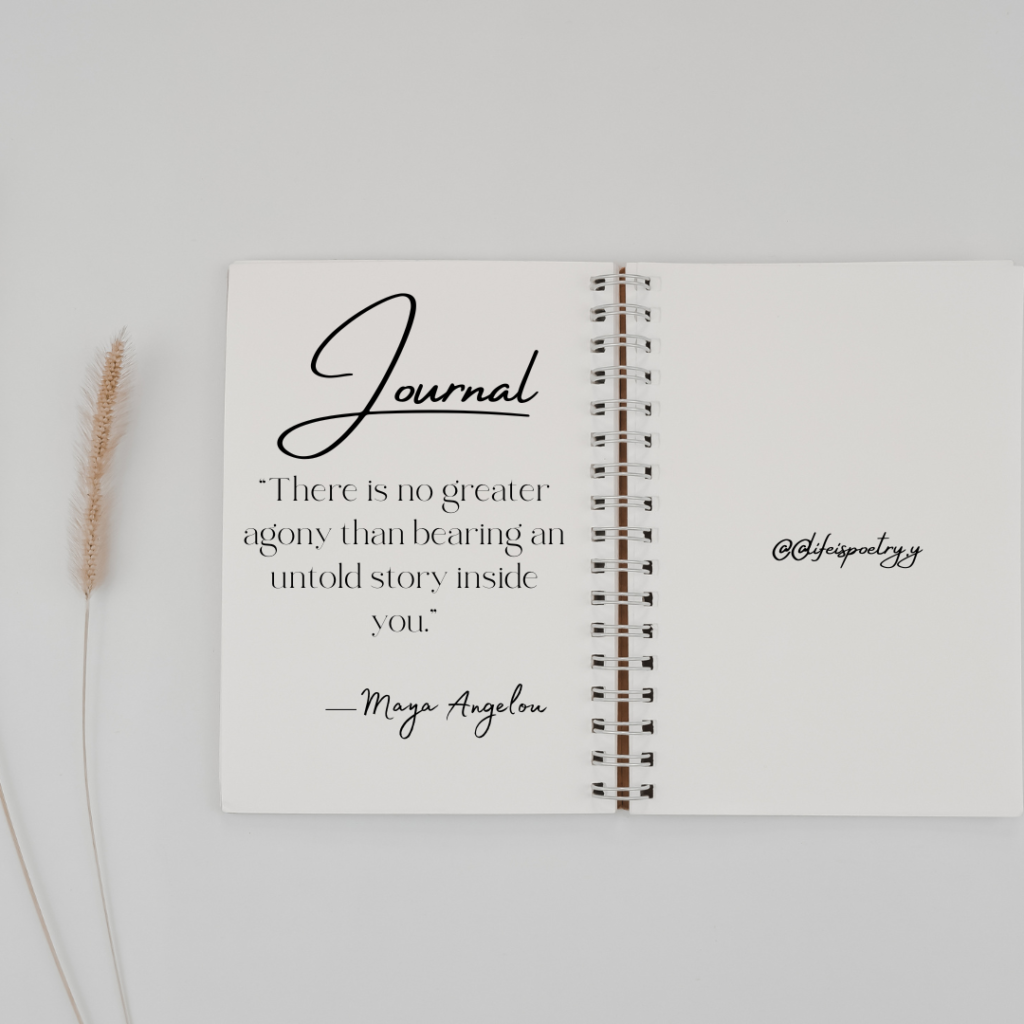 Journal
“There is no greater
agony than bearing an
untold story inside
you.”
—Maya Angelou
@@lifeispoetry.y